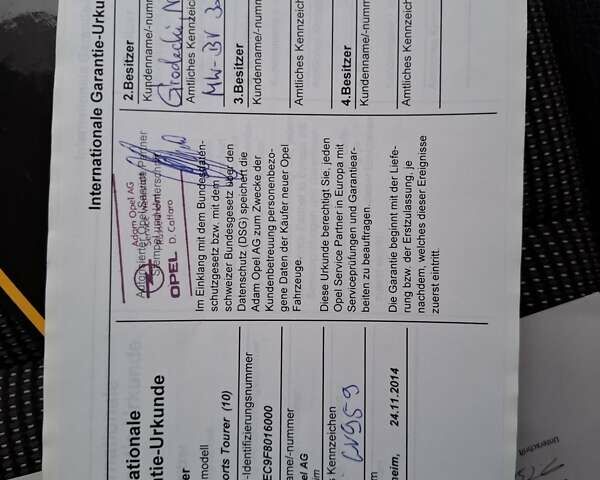 Internationale Garantie-Urku
2.Besitzer
Kundenname/-numm
Amtliches Kennzeich
MW-BV
3.Besitzer
Kundenname/-numm
Amtliches Kennzeic
4.Besitzer
Kundenname/-numm
Amtliches Kennzeic
Autorisierter Opel Service Partner
Stempel und Unterschrift
Adam Opel AG
Rüsselsheim
OPEL D. Cattaro
Im Einklang mit dem Bundesdaten-
schutzgesetz bzw. mit dem
schweizer Bundesgesetz über den
Datenschutz (DSG) speichert die
Adam Opel AG zum Zwecke der
Kundenbetreuung personenbezo-
gene Daten der Käufer neuer Opel
Fahrzeuge.
Diese Urkunde berechtigt Sie, jeden
Opel Service Partner in Europa mit
Serviceprüfungen und Garantiear-
beiten zu beauftragen.
Die Garantie beginnt mit der Liefe-
rung bzw. der Erstzulassung, je
nachdem, welches dieser Ereignisse
zuerst eintritt.
rnationale
tie-Urkunde
modell
orts Tourer (10)
-Identifizierungsnummer
EC9F8016000
ame/-nummer
el AG
im
s Kennzeichen
heim, 24.11.2014
Unterschrift